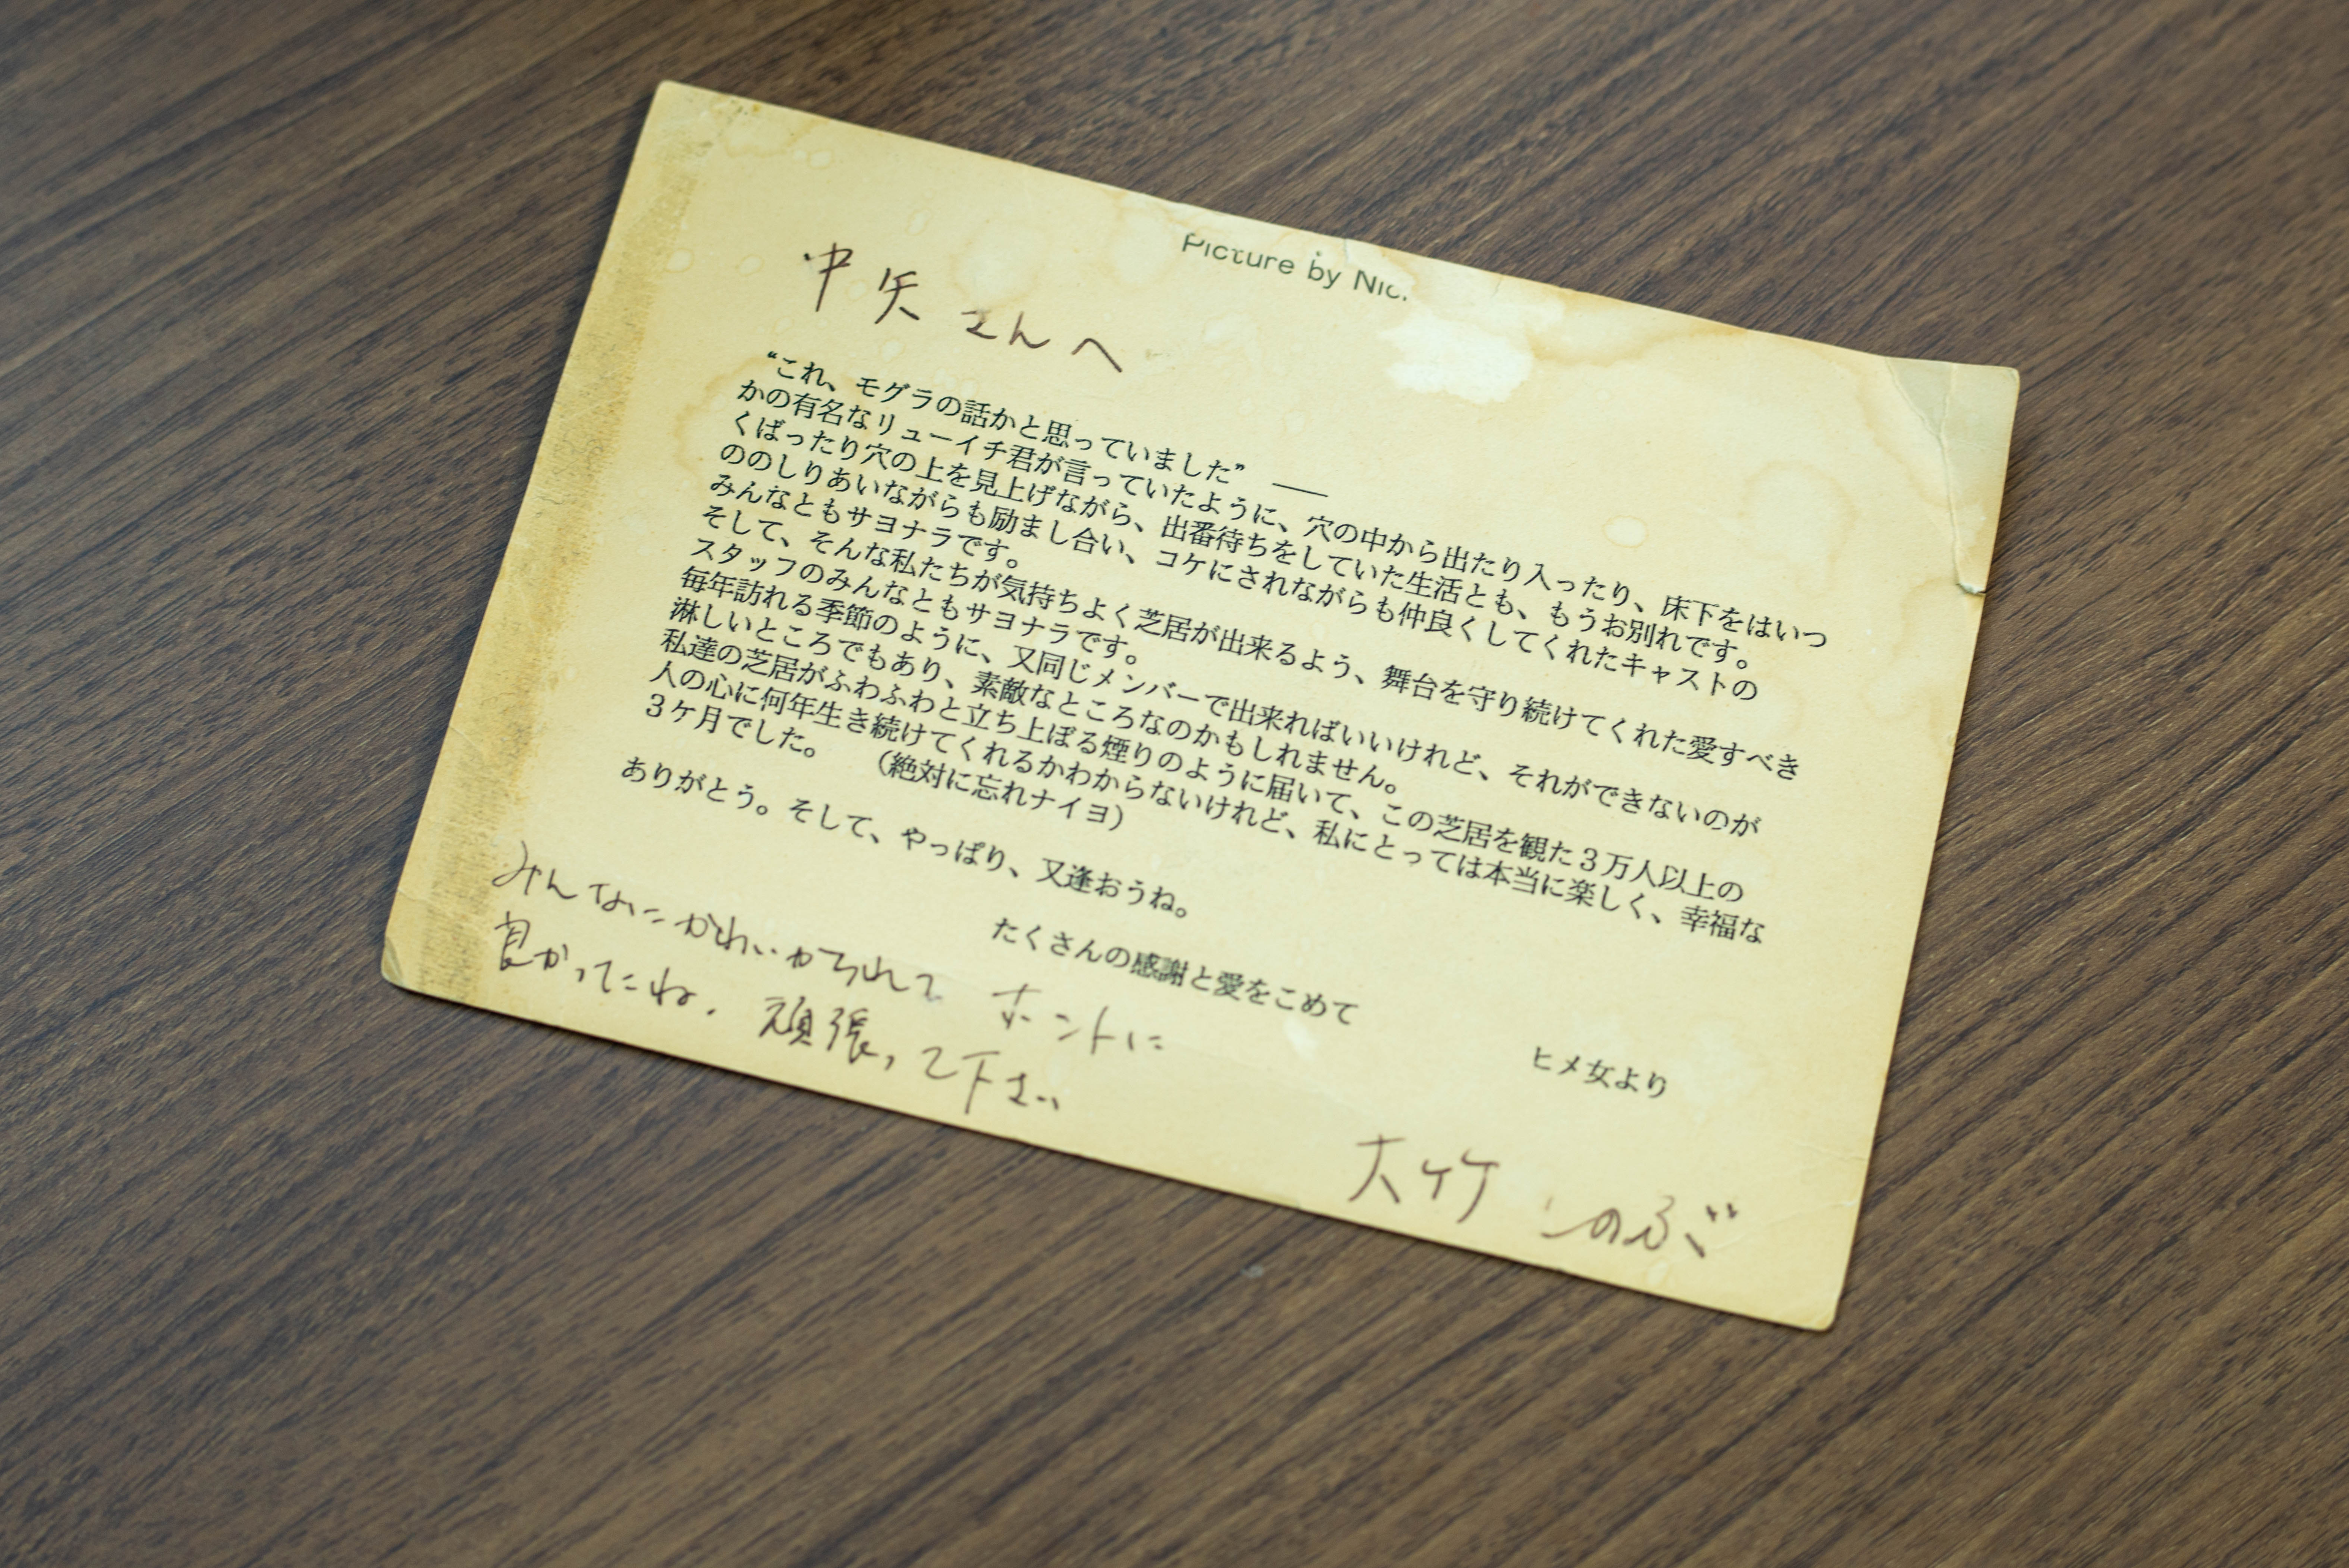 Picture by Nic.
中矢さんへ
“これ、モグラの話かと思っていました” ――
かの有名なリューイチ君が言っていたように、穴の中から出たり入ったり、床下をはいつ
くばったり穴の上を見上げながら、出番待ちをしていた生活とも、もうお別れです。
ののしりあいながらも励まし合い、コケにされながらも仲良くしてくれたキャストの
みんなともサヨナラです。
そして、そんな私たちが気持ちよく芝居が出来るよう、舞台を守り続けてくれた愛すべき
スタッフのみんなともサヨナラです。
毎年訪れる季節のように、又同じメンバーで出来ればいいけれど、それができないのが
淋しいところでもあり、素敵なところなのかもしれません。
私達の芝居がふわふわと立ち上ぼる煙りのように届いて、この芝居を観た3万人以上の
人の心に何年生き続けてくれるかわからないけれど、私にとっては本当に楽しく、幸福な
3ケ月でした。 （絶対に忘れナイヨ）
ありがとう。そして、やっぱり、又逢おうね。
たくさんの感謝と愛をこめて
ヒメ女より
みんなにかわいがられて ホントに
良かったね. 頑張って下さい
大竹 しのぶ